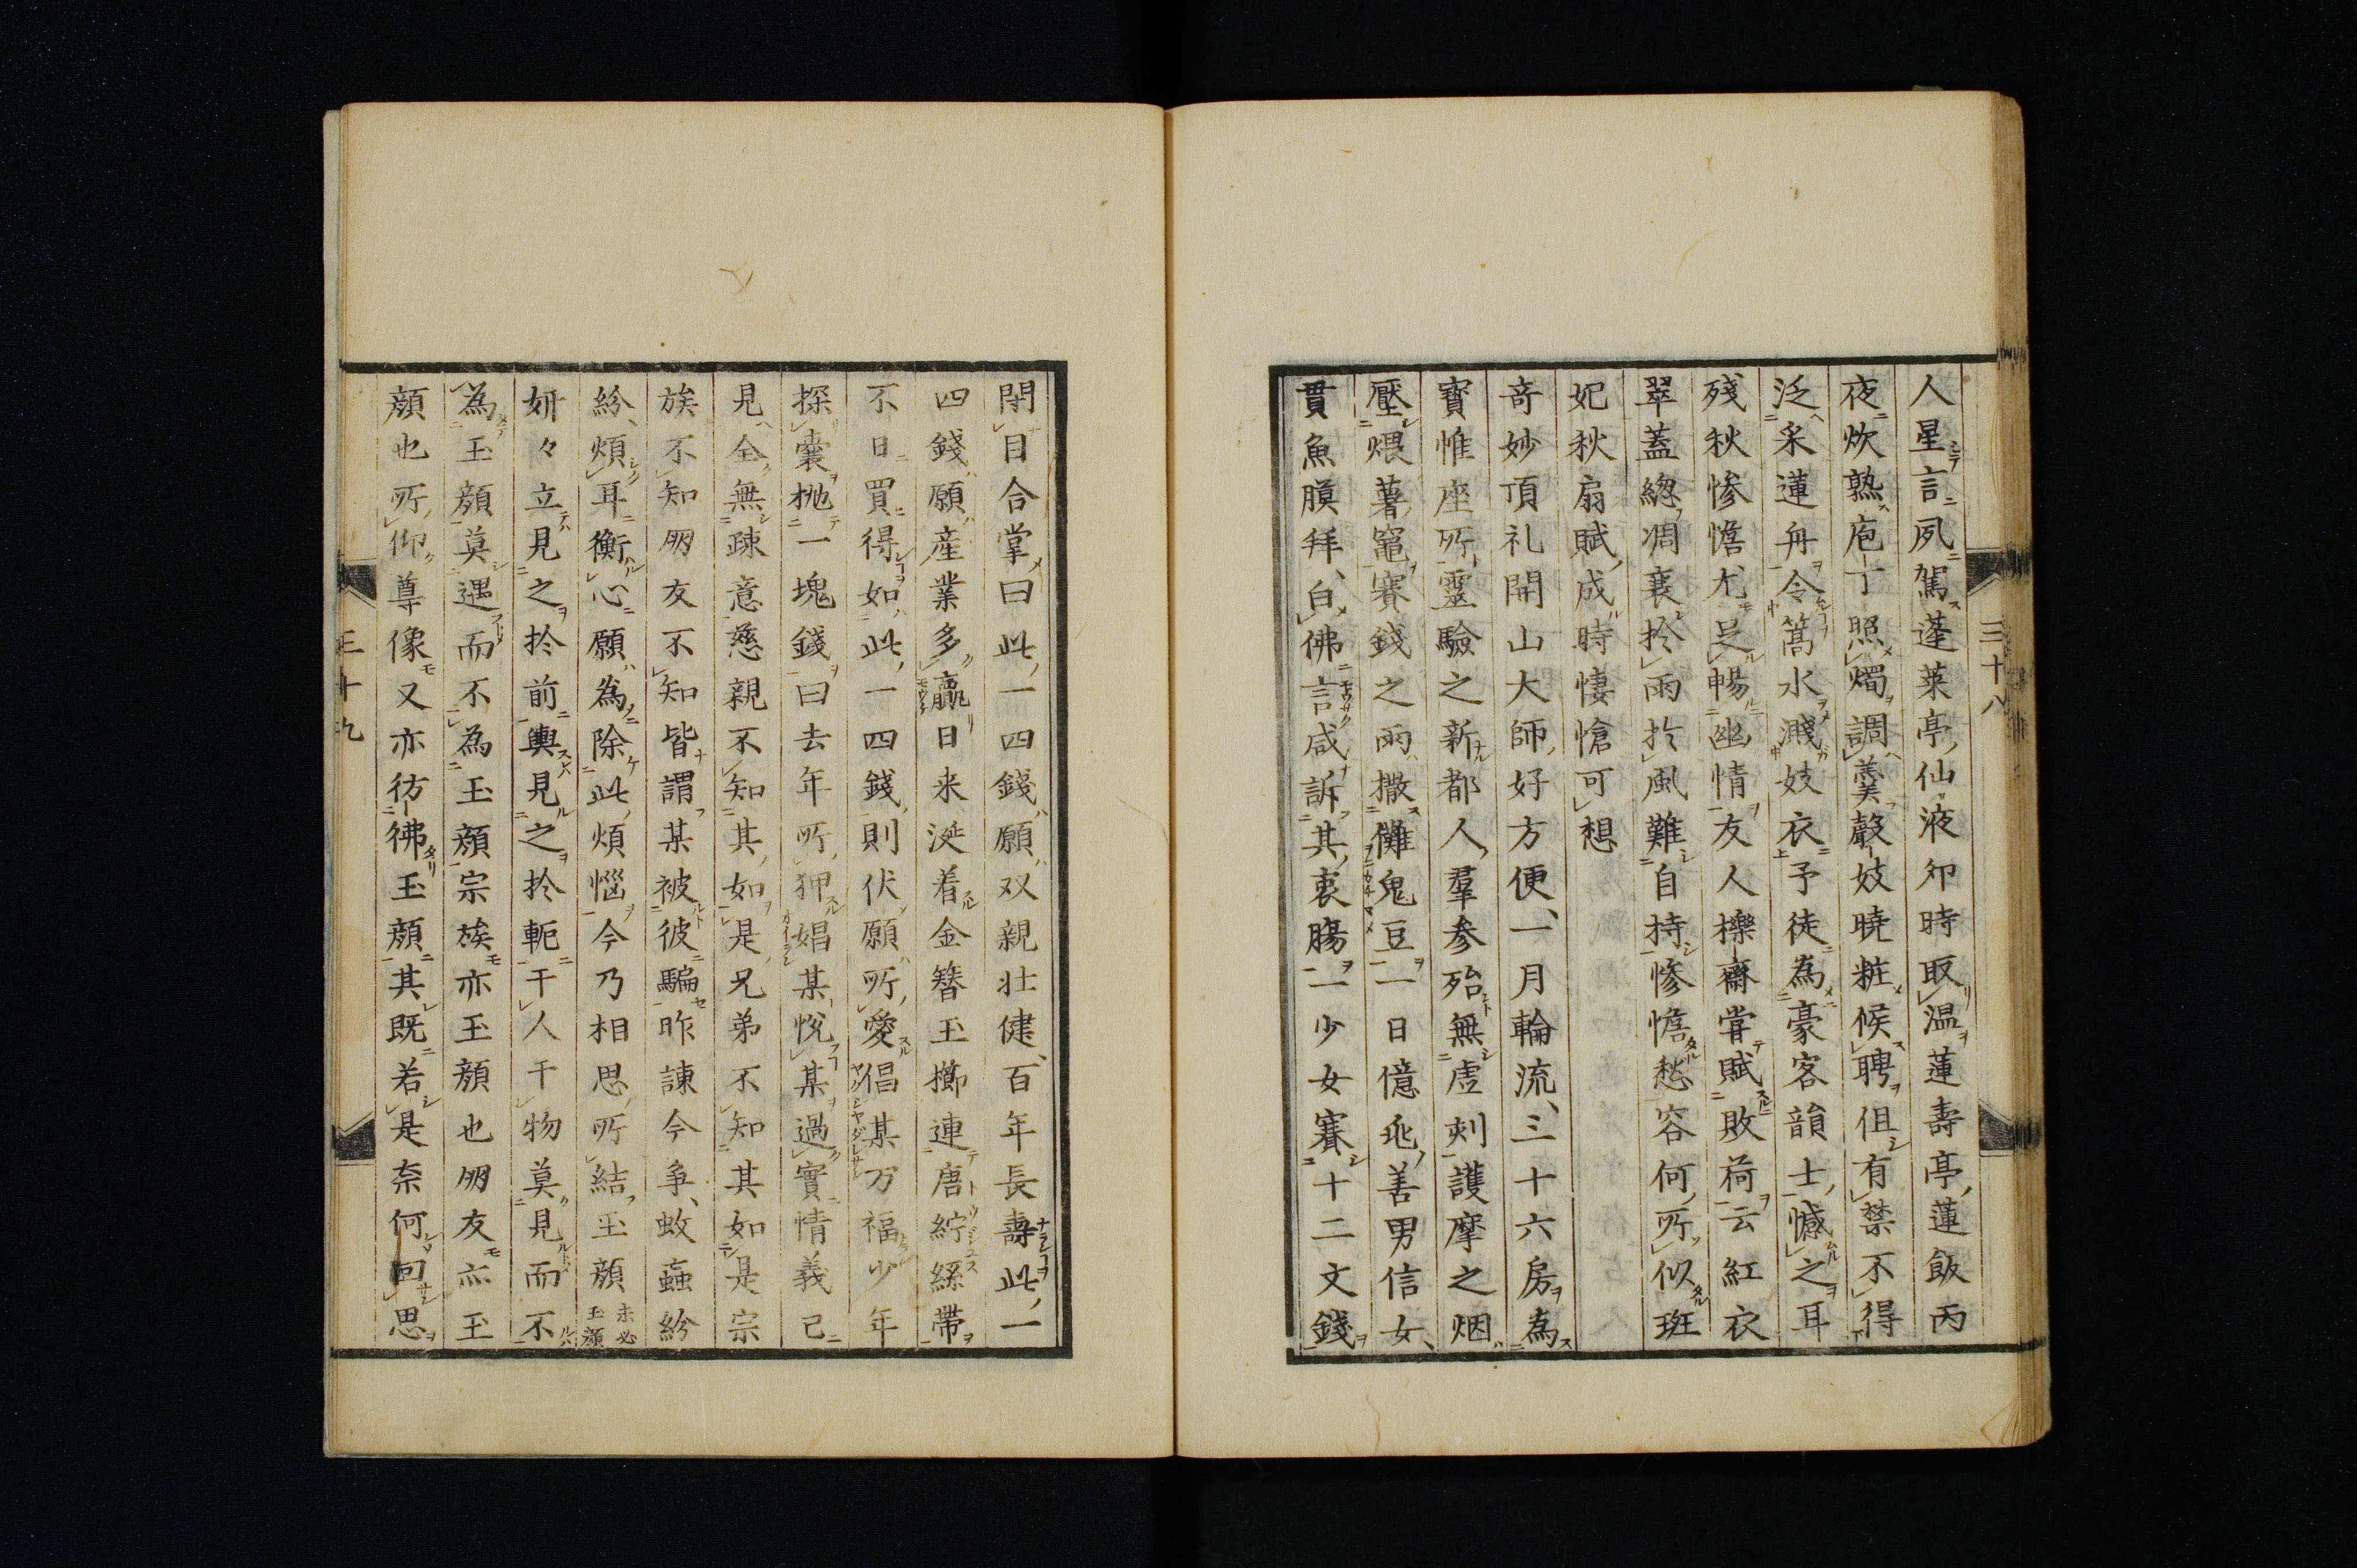 人星言夙駕蓬莱亭仙液卯時取温蓮壽亭蓮飯丙
夜炊熟庖丁照燭調羹聲妓曉粧候聘但有禁不得
泛采蓮舟令篙水濺妓衣予徒為豪客韻士憾之耳
殘秋惨憺尤足暢幽情友人櫟齋甞賦敗荷云紅衣
翠蓋緫凋衰扵雨扵風難自持惨憺愁容何所似班
妃秋扇賦成時悽愴可想
竒妙頂礼開山大師好方便一月輪流三十六房為
寳惟座所靈驗之新都人羣参殆無虚刻護摩之烟
壓煨薯竈賽錢之雨撒儺鬼豆一日億兆善男信女
貫魚膜拜白佛言咸訴其衷膓一少女賽十二文錢
三十八
閉目合掌曰此一四錢願双親壮健百年長壽此一
四錢願産業多贏日来涎着金簪玉擲連唐紵縧帶
不日買得如此一四錢則伏願所愛倡某万福少年
探嚢抛一塊錢曰去年所狎娼某悅某過實情義已
見全無疎意慈親不知其如是兄弟不知其如是宗
族不知朋友不知皆謂某被彼騙昨諌今爭蚊蝱紛
紛煩耳衡心願為除此煩惱今乃相思所結玉顔未必玉顔
妍々立見之扵前輿見之扵軛干人干物莫見而不
為玉顔莫遇而不為玉顔宗族亦玉顔也朋友亦玉
顔也所仰尊像又亦彷彿玉顔其既若是奈何回思
三十九